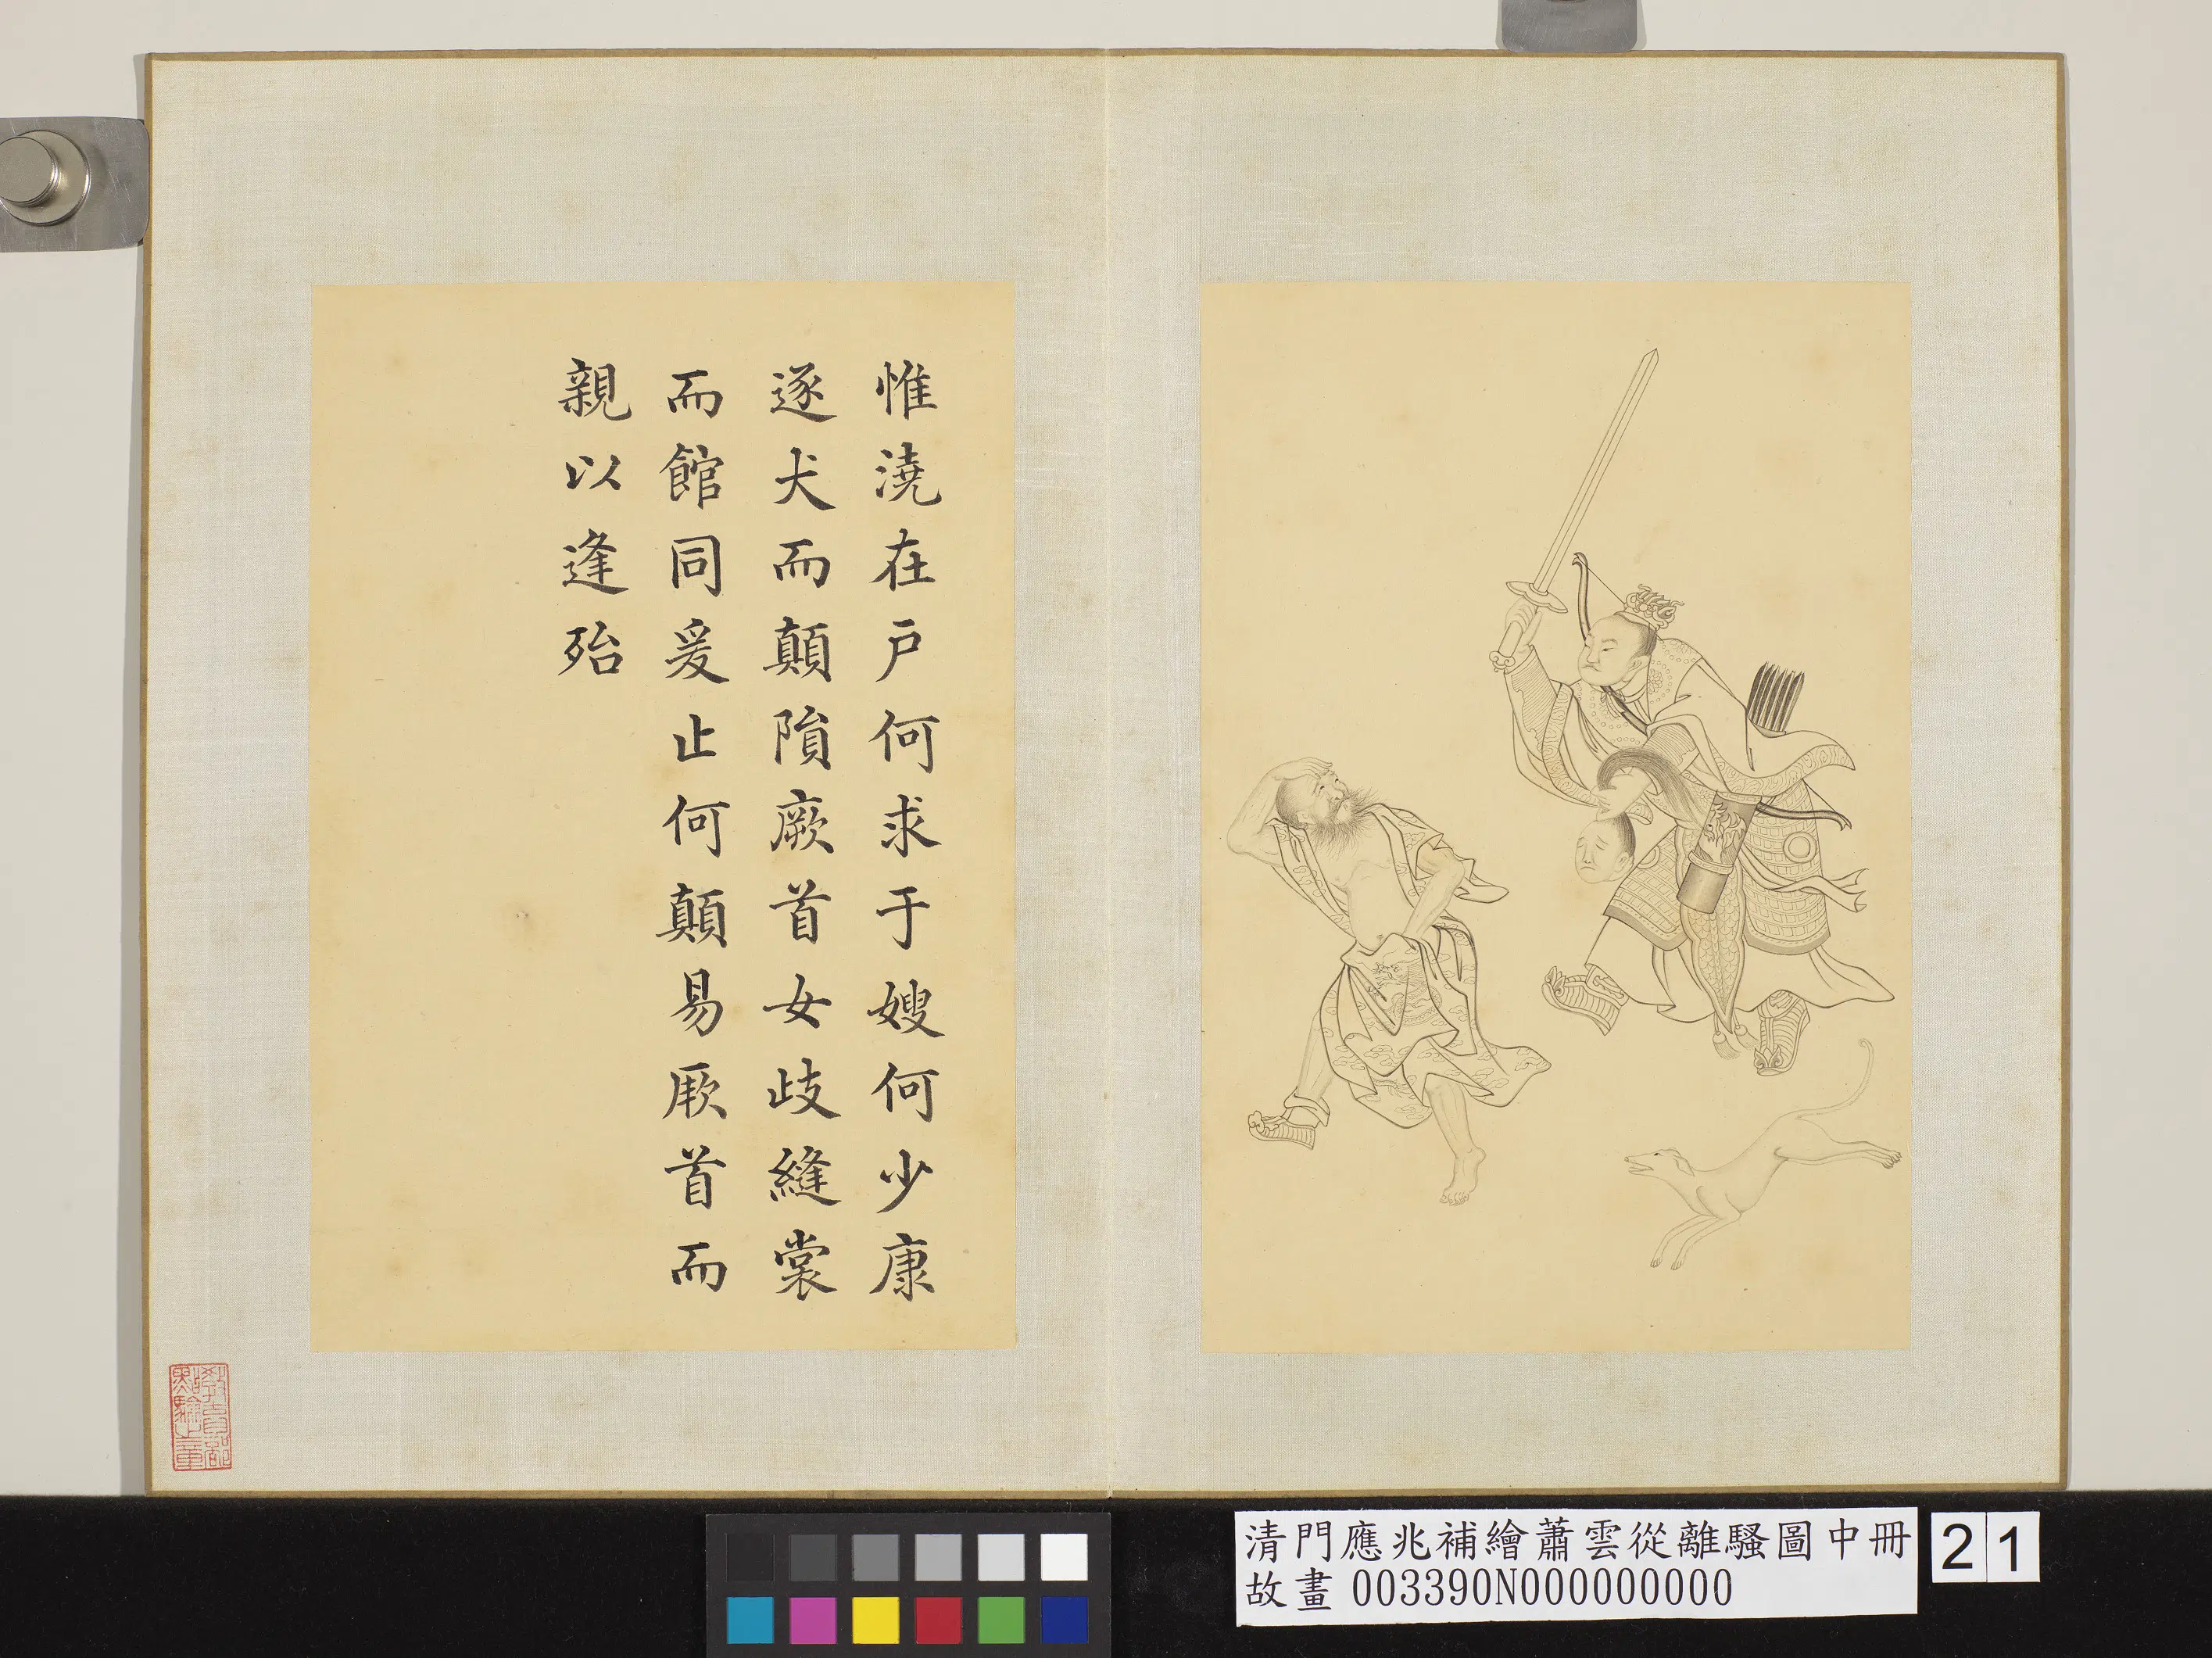 惟澆在戶何求于嫂何少康
逐犬而顛隕厥首女歧縫裳
而館同爰止何顛易厥首而
親以逢殆
教育部
點驗之章
清門應兆補繪蕭雲從離騷圖中冊
故畫 003390N000000000
21